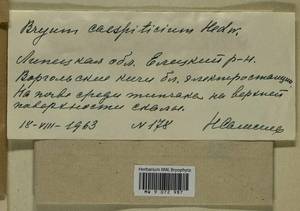 Bryum caespiticium Hedw.
Липецкая обл. Елецкий р-н.
Воргольские бл. электростанции
На почве среди типчака на верхней
поверхности скалы.
18-VIII-1963 N 178
Herbarium MW, Bryophyta
MW 9 072 987